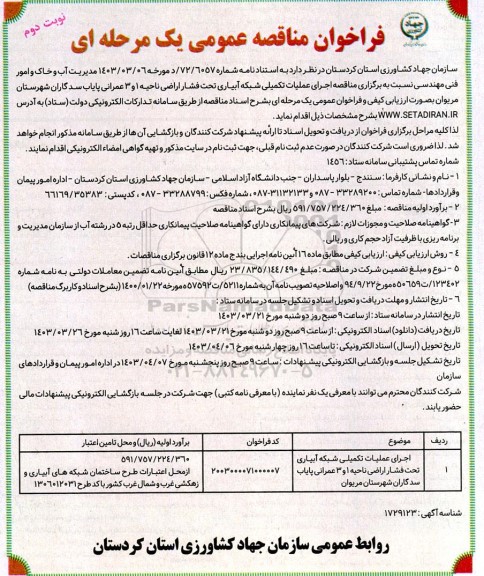 نوبت دوم
جهاد کشاورزی
فراخوان مناقصه عمومی یک مرحله ای
سازمان جهاد کشاورزی استان کردستان در نظر دارد به استناد نامه شماره ۷۲/۶۰۵۷/د مورخه ۱۴۰۳/۰۳/۰۶ مدیریت آب و خاک و امور
فنی مهندسی نسبت به برگزاری مناقصه اجرای عملیات تکمیلی شبکه آبیاری تحت فشار اراضی ناحیه ۱ و ۳ عمرانی پایاب سد گاران شهرستان
مریوان بصورت ارزیابی کیفی و فراخوان عمومی یک مرحله ای بشرح اسناد مناقصه از طریق سامانه تدارکات الکترونیکی دولت (ستاد) به آدرس
WWW.SETADIRAN.IR بشرح مشخصات ذیل اقدام نماید.
لذا کلیه مراحل برگزاری فراخوان از دریافت و تحویل اسناد تا ارائه پیشنهاد شرکت کنندگان و بازگشایی آن ها از طریق سامانه مذکور انجام خواهد
شد. لذا ضروری است شرکت کنندگان در صورت عدم ثبت نام قبلی، جهت ثبت نام در سایت مذکور و تهیه گواهی امضاء الکترونیکی اقدام نمایند.
شماره تماس پشتیبانی سامانه ستاد: ۱۴۵۶
۱ - نام و نشانی کارفرما: سنندج - بلوار پاسداران - جنب دانشگاه آزاد اسلامی - سازمان جهاد کشاورزی استان کردستان - اداره امور پیمان
وقراردادها- شماره تماس: ۳۳۲۸۹۲۰۰ - ۰۸۷ و ۳۱۱۳۲۱۳۳-۰۸۷ - شماره فکس: ۳۳۲۸۸۷۹۹ - ۰۸۷ ، کدپستی: ۶۶۱۶۹/۳۵۳۸۳
۲ - برآورد اولیه مناقصه: مبلغ ۵۹۱/۷۵۷/۲۲۴/۳۶۰ ریال بشرح اسناد مناقصه
۳-گواهینامه صلاحیت و مجوزات لازم: شرکت های پیمانکاری دارای گواهینامه صلاحیت پیمانکاری حداقل رتبه ۵ در رشته آب از سازمان مدیریت و
برنامه ریزی با ظرفیت آزاد حجم کاری و ریالی.
۴ - روش ارزیابی کیفی: ارزیابی کیفی مطابق ماده ۱۶ آئین نامه اجرایی بندج ماده ۱۲ قانون برگزاری مناقصات.
۵ - نوع و مبلغ تضمین شرکت در مناقصه: مبلغ ۲۳/۸۳۵/۱۴۴/۴۹۰ ریال مطابق آیین نامه تضمین معاملات دولتی به نامه شماره
۱۲۳۴۰۲/ت۵۰۶۵۹ه مورخ ۹۴/۹/۲۲ و اصلاحیه تصویب نامه آن به شماره ۵۲۱۱/ت۵۷۵۹۲ه مورخه ۱۴۰۰/۰۱/۲۲ (بشرح اسناد کاربرگ مناقصه)
۶ - تاریخ انتشار و مهلت دریافت و تحویل اسناد و تشکیل جلسه در سامانه ستاد:
تاریخ انتشار در سامانه ستاد: از ساعت ۹ صبح روز دوشنبه مورخ ۱۴۰۳/۰۳/۲۱
تاریخ دریافت (دانلود) اسناد الکترونیکی: از ساعت ۹ صبح روز دوشنبه مورخ ۱۴۰۳/۰۳/۲۱ لغایت ساعت ۱۶ روز شنبه مورخ ۱۴۰۳/۰۳/۲۶
تاریخ تحویل (ارسال) اسناد الکترونیکی: تا ساعت ۱۶ روز چهارشنبه مورخ ۱۴۰۳/۰۴/۰۶
تاریخ تشکیل جلسه و بازگشایی الکترونیکی پیشنهادات: ساعت ۹ صبح روز پنجشنبه مورخ ۱۴۰۳/۰۴/۰۷ در اداره امور پیمان و قراردادهای
سازمان
شرکت کنندگان محترم می توانند با معرفی یک نفر نماینده (با معرفی نامه کتبی) جهت شرکت در جلسه بازگشایی الکترونیکی پیشنهادات مالی
حضور یابند.
ردیف موضوع کد فراخوان برآورد اولیه (ریال) و محل تامین اعتبار
۱ اجرای عملیات تکمیلی شبکه آبیاری تحت فشار اراضی ناحیه ۱ و ۳ عمرانی پایاب سد گاران شهرستان مریوان ۲۰۰۳۰۰۰۰۷۱۰۰۰۰۰۷ ۵۹۱/۷۵۷/۲۲۴/۳۶۰ ازمحل اعتبارات طرح ساختمان شبکه های آبیاری و زهکشی غرب و شمال غرب کشور با کد طرح ۱۳۰۶۰۱۲۰۳۱
شناسه آگهی: ۱۷۲۹۱۲۳
روابط عمومی سازمان جهاد کشاورزی استان کردستان
ParsNamadData
۰۲۱-۸۸۳۴۹۶۷۰-۵